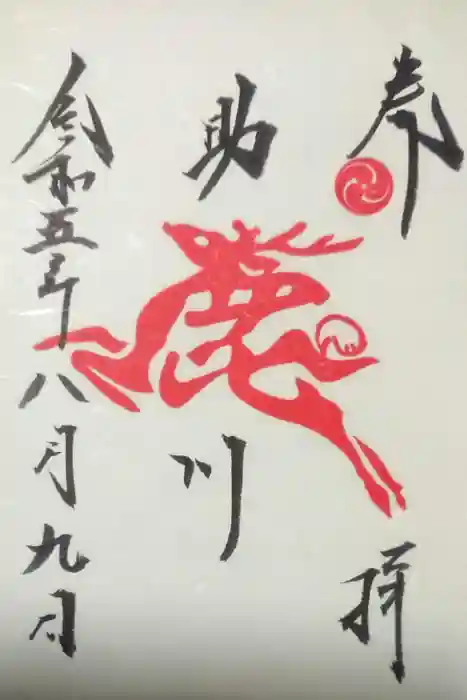 奉拝
助川
鹿
令和五年八月九日